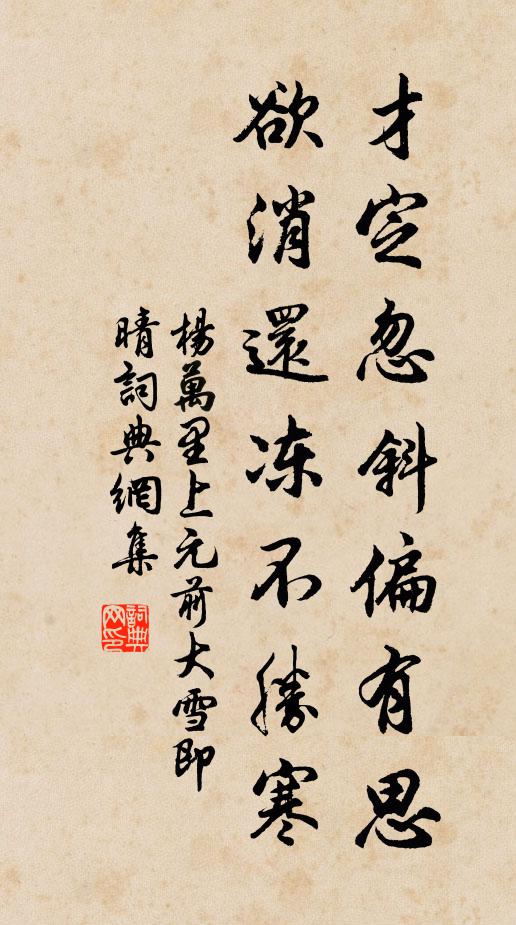 才定忽斜偏有思
欲消還冻不勝寒
楊萬里上元前大雪即
晴詞典網集
詞典
网印